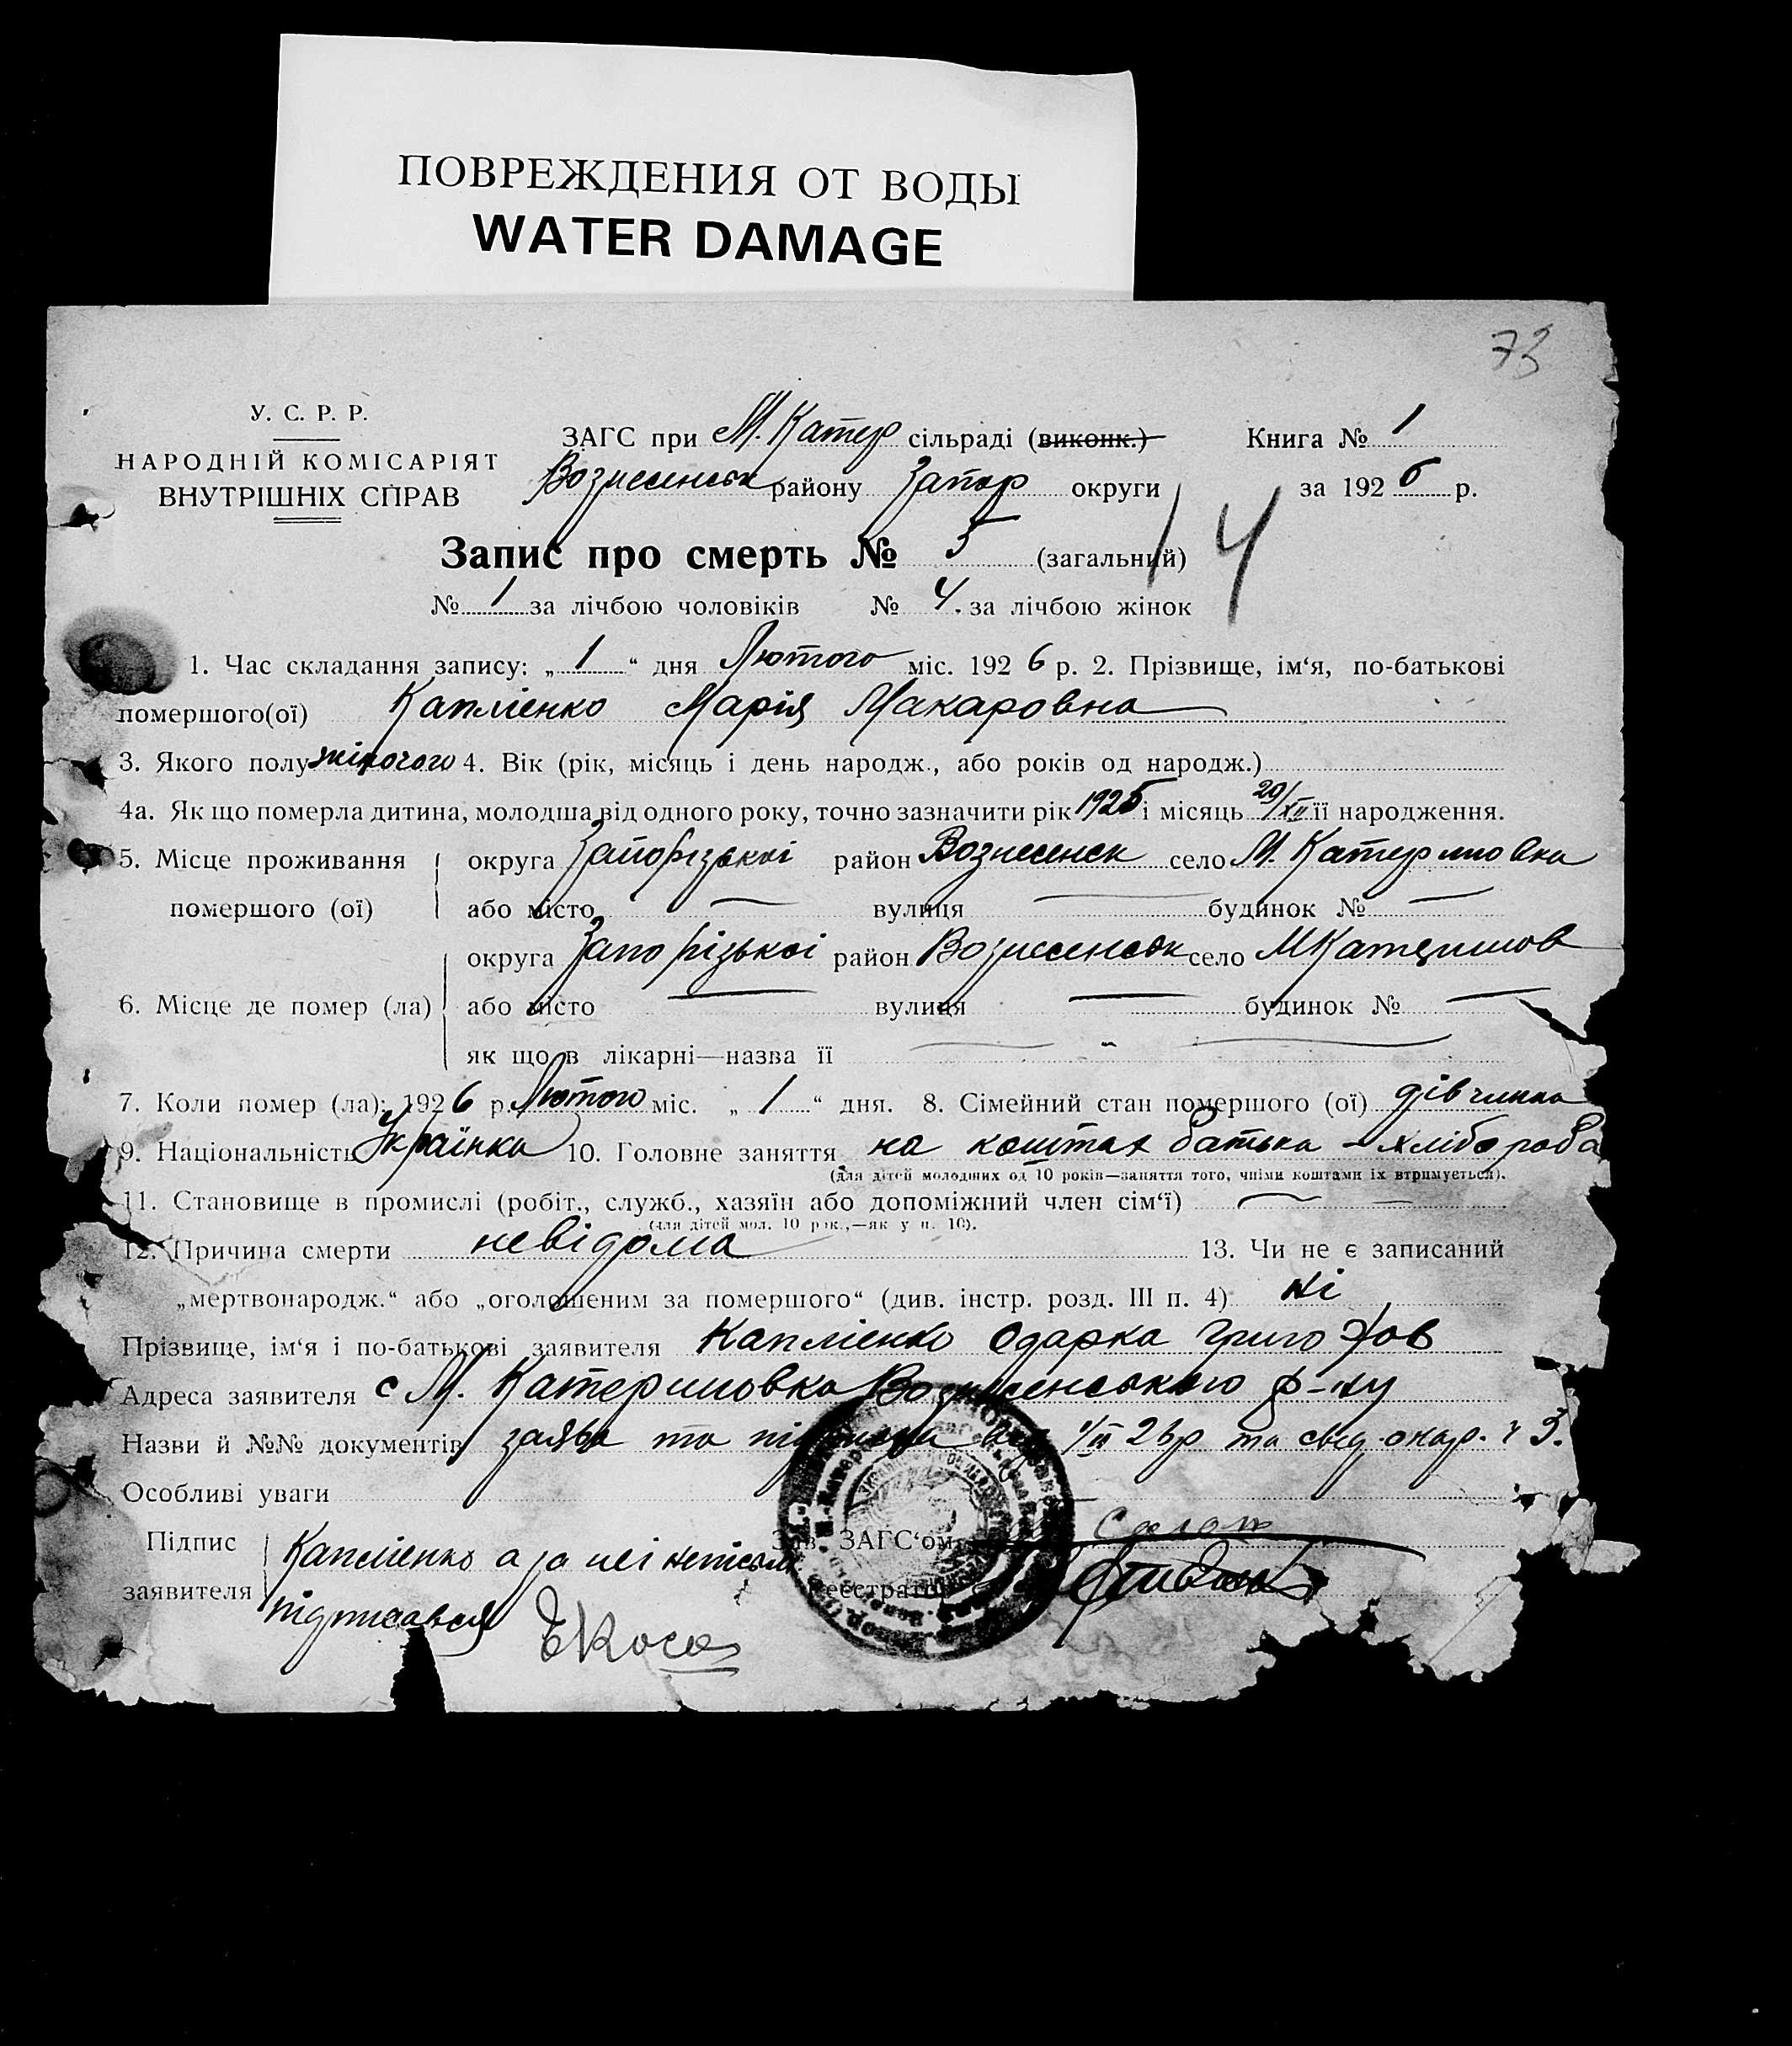 ПОВРЕЖДЕНИЯ ОТ ВОДЫ
WATER DAMAGE
73
У. С. Р. Р.
НАРОДНІЙ КОМІСАРІЯТ
ВНУТРІШНІХ СПРАВ
ЗАГС при М. Катер сільраді (виконк.) Книга № 1
Вознесенськ району Запор округи за 1926 р.
Запис про смерть № 5 (загальний) 14
№ 1 за лічбою чоловіків № 4. за лічбою жінок
1. Час складання запису: „1“ дня Лютого міс. 1926 р. 2. Прізвище, ім‘я, по-батькові
помершого(ої) Каплієнко Марія Макаровна
3. Якого полу жіночого 4. Вік (рік, місяць і день народж., або років од народж.)
4а. Як що померла дитина, молодша від одного року, точно зазначити рік 1925 і місяць 20/XII її народження.
5. Місце проживання округа Запорізької район Вознесенск село М. Катериновка
помершого (ої) або місто — вулиця — будинок № —
округа Запорізької район Вознесенськ село М Катеринов
6. Місце де помер (ла) або місто — вулиця — будинок № —
як що в лікарні—назва її — „ —
7. Коли помер (ла): 1926 р. Лютого міс. „1“ дня. 8. Сімейний стан помершого (ої) дівчинка
9. Національність Українка 10. Головне заняття на коштах батька - хлібороба
(для дітей молодших од 10 років—заняття того, чиїми коштами їх втримується).
11. Становище в промислі (робіт., служб., хазяїн або допоміжний член сім‘ї) — —
(для дітей мол. 10 рок.,—як у п. 10).
12. Причина смерти невідома 13. Чи не є записаний
„мертвонародж.“ або „оголошеним за помершого“ (див. інстр. розд. III п. 4) ні
Прізвище, ім‘я і по-батькові заявителя Каплієнко Одарка Григоров
Адреса заявителя с М. Катериновка Вознесенського р-ну
Назви й №№ документів заява та
Особливі уваги
Підпис Каплієнко а за неї Зав. ЗАГС‘ом
заявителя підписався Реєстратор